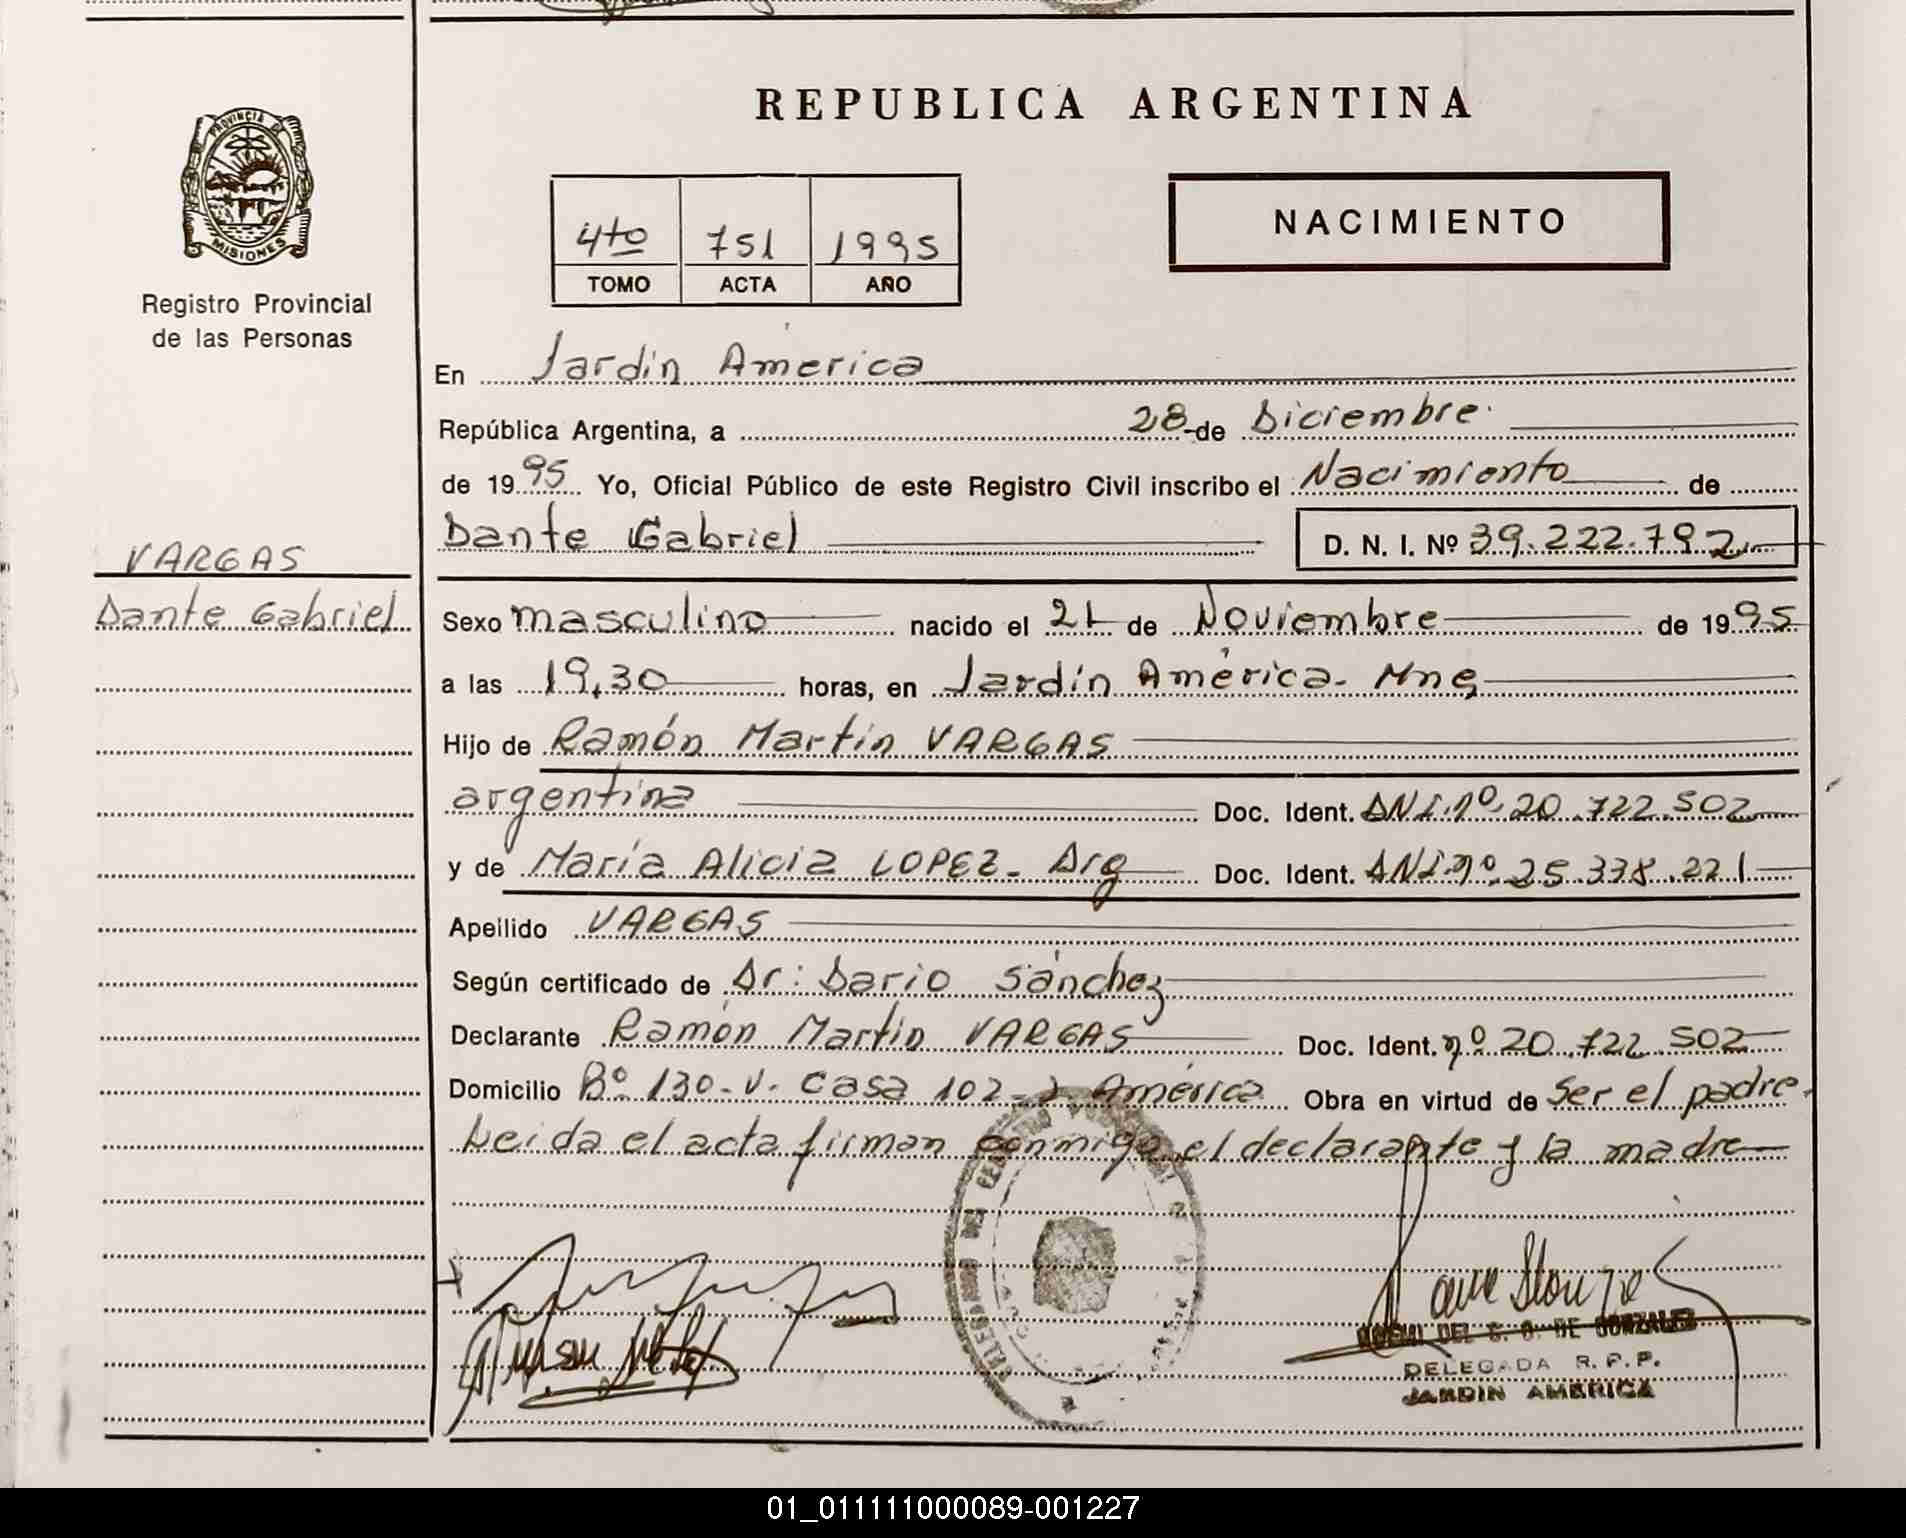 PROVINCIA DE
MISIONES
Registro Provincial
de las Personas
VARGAS
Dante Gabriel
REPUBLICA ARGENTINA
4to 751 1995
TOMO ACTA AÑO
NACIMIENTO
En Jardín América
República Argentina, a 28 de Diciembre
de 1995 Yo, Oficial Público de este Registro Civil inscribo el Nacimiento de
Dante Gabriel D. N. I. Nº 39.222.792
Sexo masculino nacido el 21 de Noviembre de 1995
a las 19,30 horas, en Jardín América - Mnes
Hijo de Ramón Martín VARGAS
argentina Doc. Ident. DNI.nº.20.722.502
y de María Alicia LOPEZ - Arg Doc. Ident. DNI.nº.25.338.221
Apellido VARGAS
Según certificado de Dr: Dario Sánchez
Declarante Ramón Martín VARGAS Doc. Ident. nº 20.722.502
Domicilio Bº 130-V- Casa 102 - J. América Obra en virtud de Ser el padre.
Leida el acta firman conmigo el declarante y la madre
DEL S. G. DE GONZALEZ
DELEGADA R.P.P.
JARDIN AMERICA
01_011111000089-001227